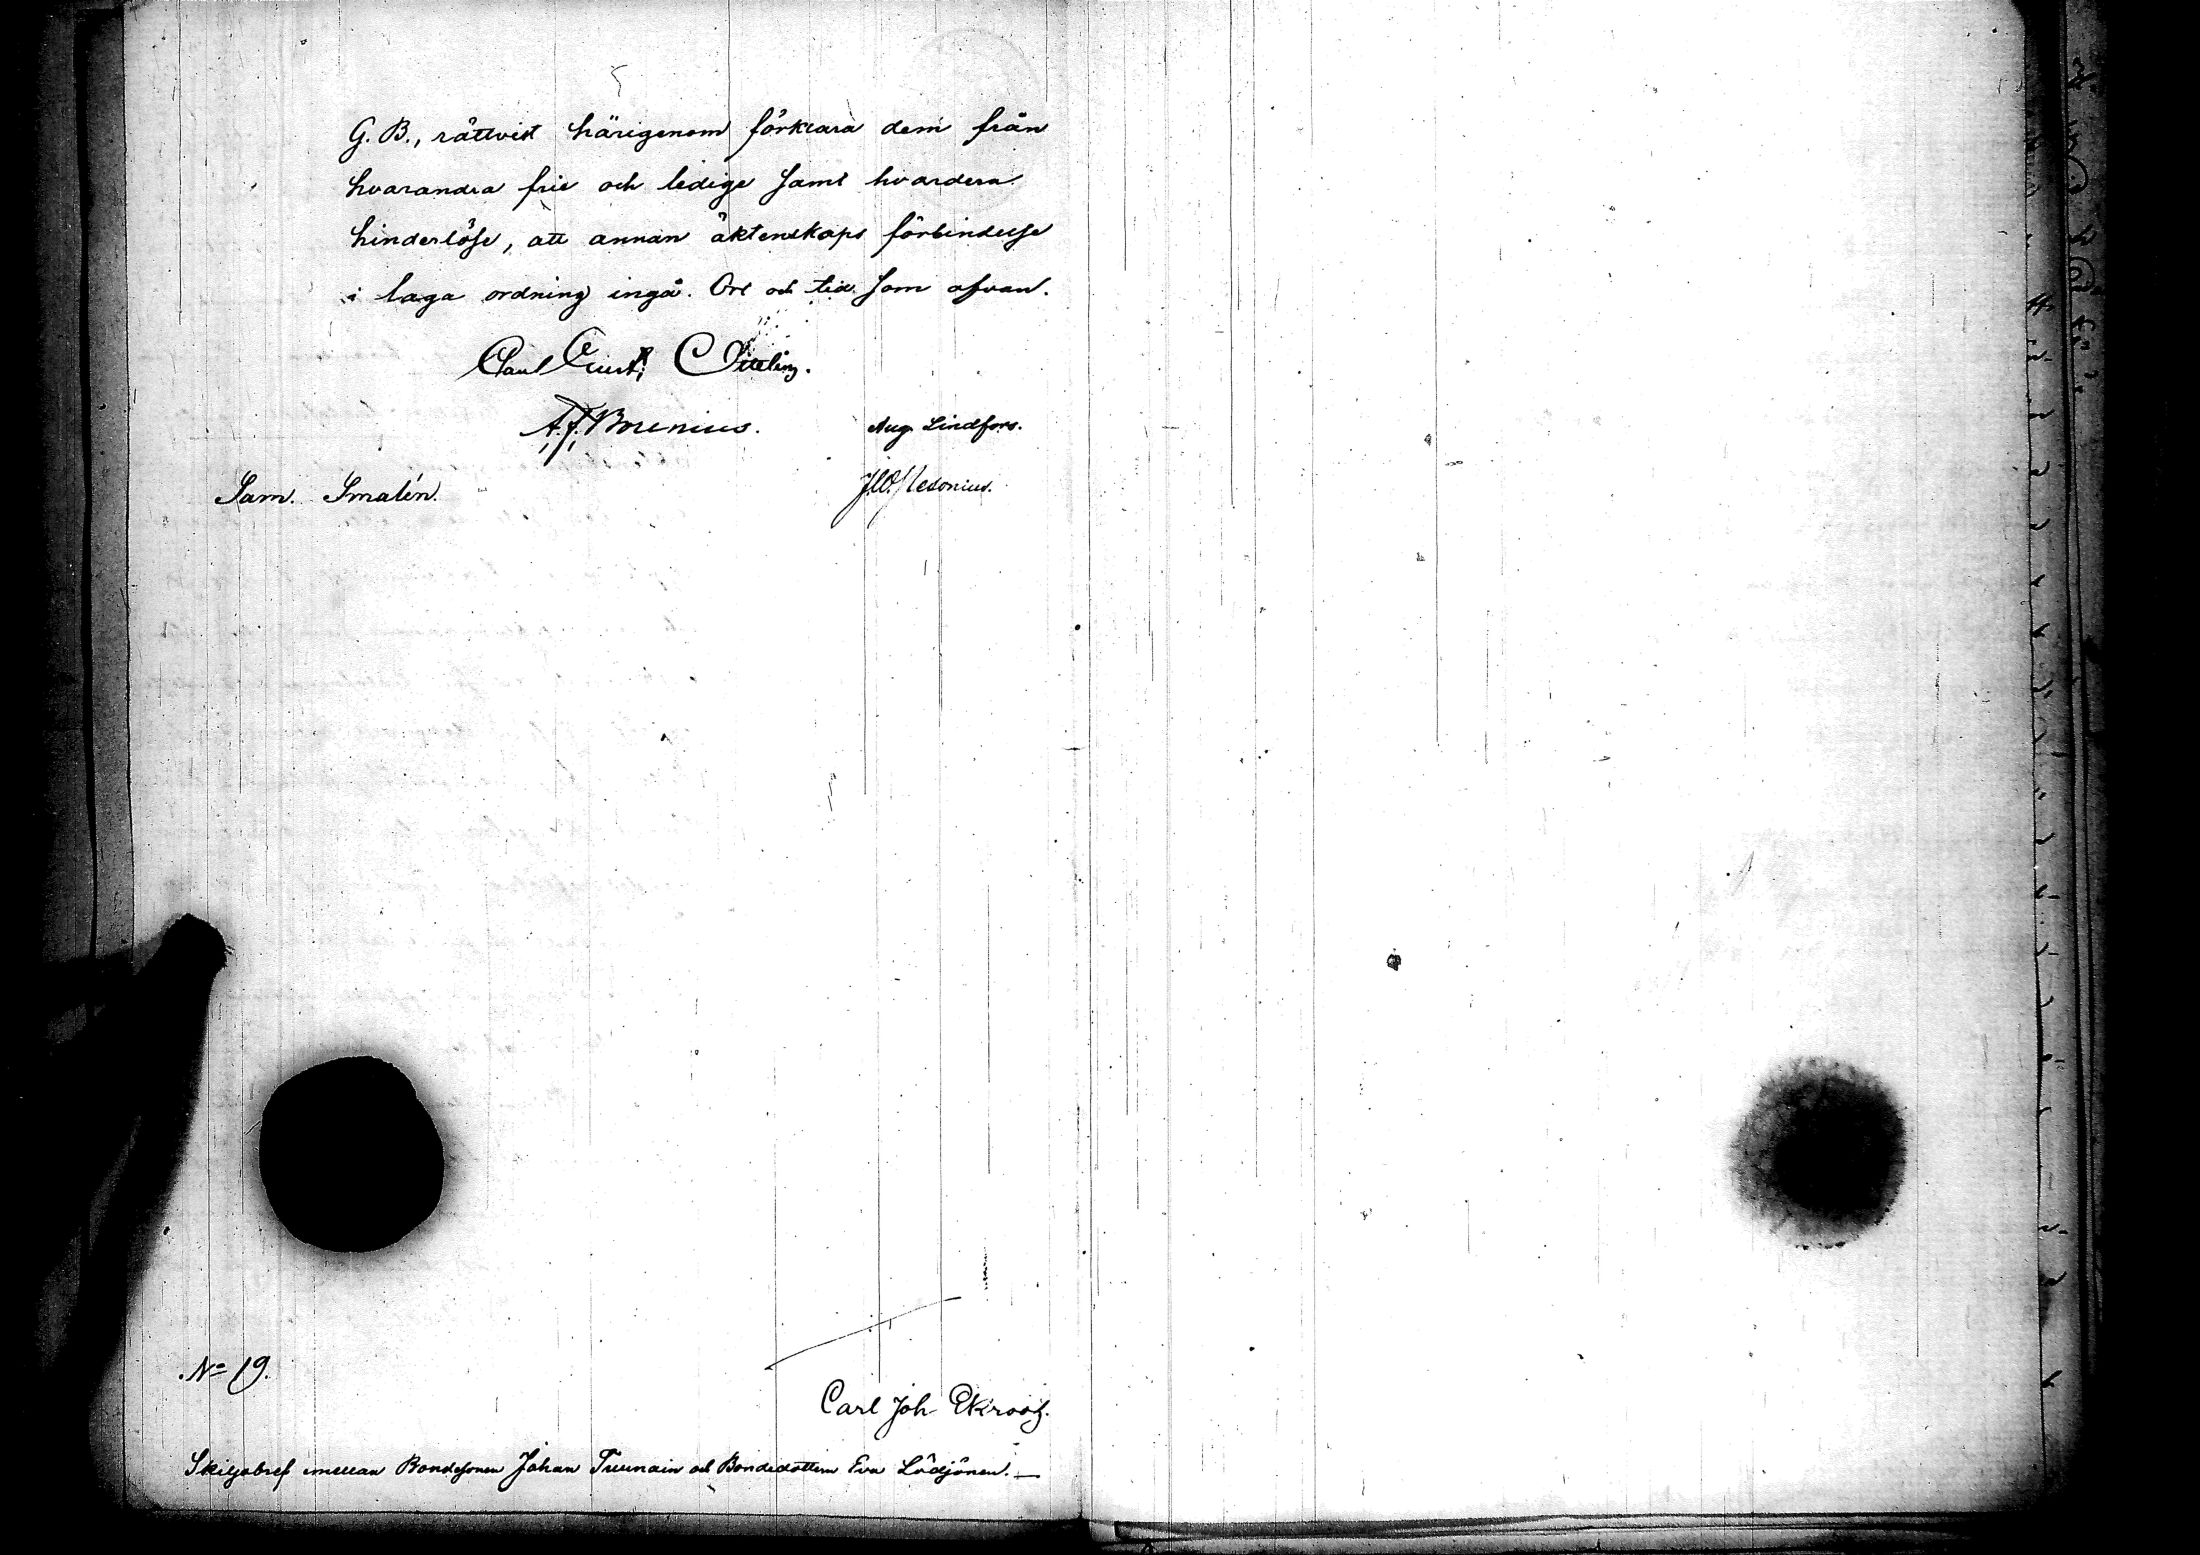 G. B., rättvist härigenom förklara dem från
hvarandra frie och ledige samt hvardera
hinderlöse, att annan äktenskaps förbindelse
i laga ordning ingå. Ort och tid som ofvan.
Paul Ernst
A. F. Borenius.
Aug. Lindfors.
Sam. Smalén.
No 19.
Carl Joh. Ekroos.
Skiljobref emellan Bondesonen Johan och Bondedottern Eva